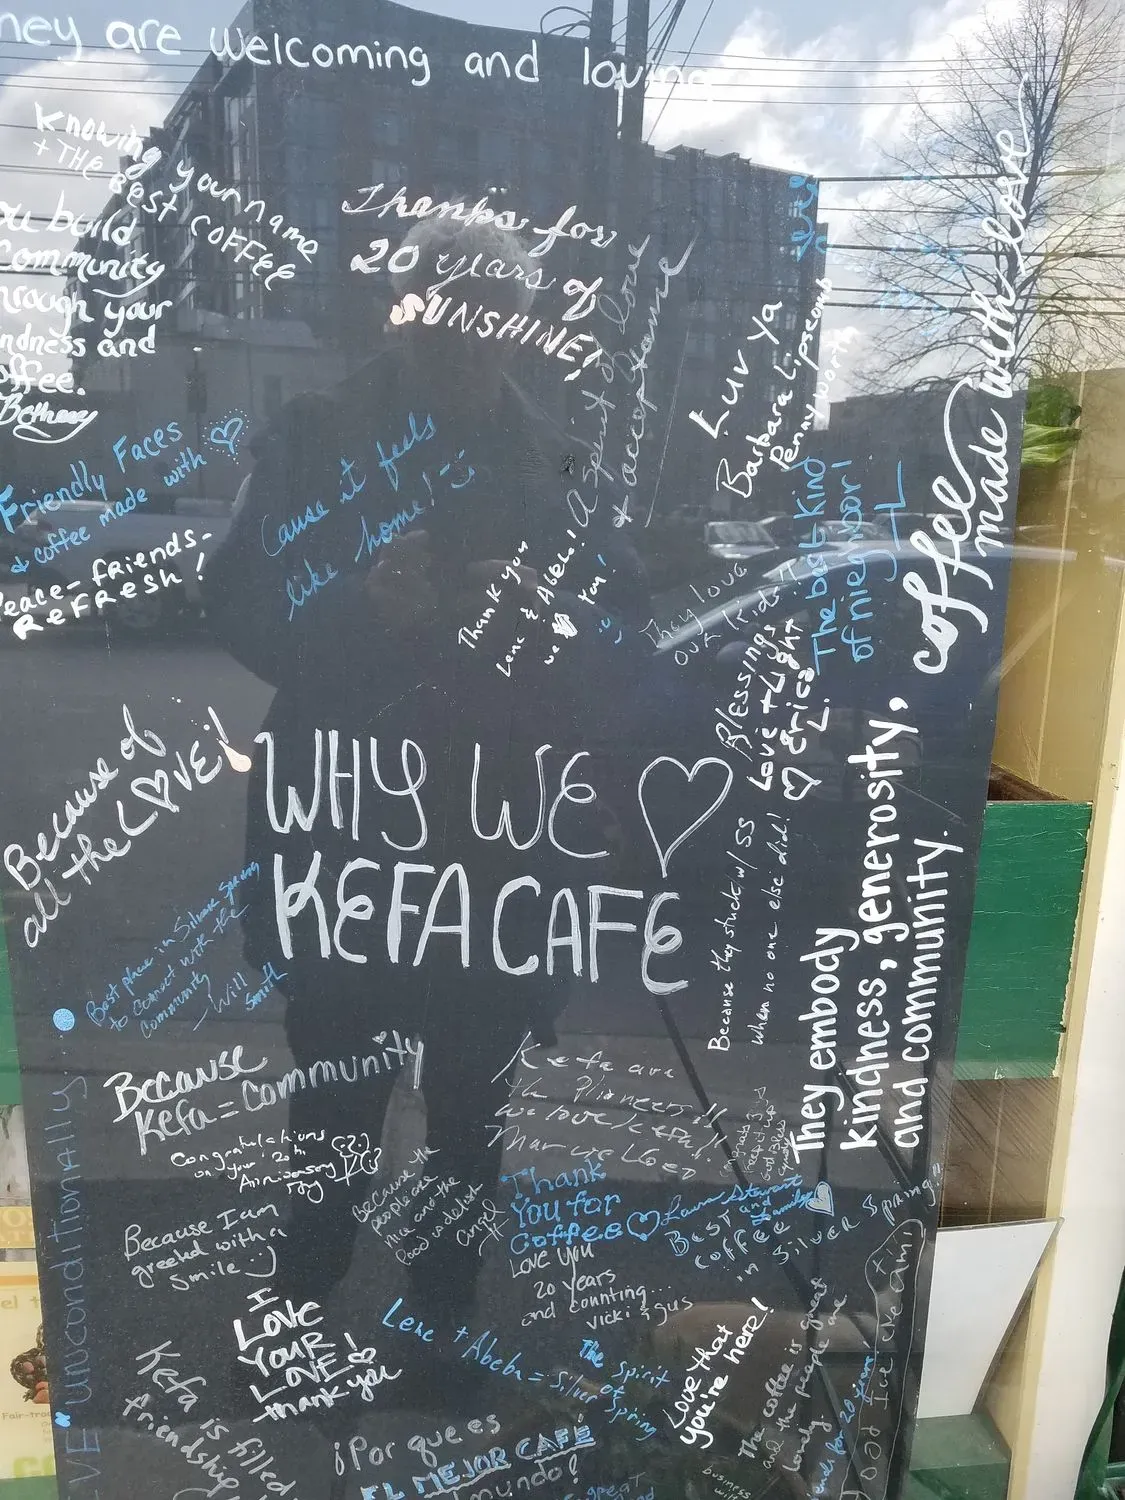 hey are welcoming and loving
Knowing your name
+ THE BEST COFFEE
build
Community
through your
kindness and
coffee.
Bethany
Thanks for
20 years of
SUNSHINE!
A spirit of love
+ acceptance
Luv Ya
Barbara Lipscomb
Pennyworth
coffee made with love
Friendly Faces
& coffee made with
Peace - friends -
REFRESH!
Cause it feels
like home!
Thank you
Lene & Abeba!
we you!
They love
our kids
The best kind
of nieghbor!
-L
Blessings
Love + Light
Erica
L.
Because of
all the LOVE!
WHY WE
KEFA CAFE
Because they stuck w/ SS
when no one else did!
They embody
kindness, generosity,
and community.
Best place in Silver Spring
to connect with the
Community
- Will
Smith
Because
Kefa = Community
Congratulations
on your 20th
Anniversary
Kefa are
the Pioneers!!
We love Kefa!!
Thank
You for
Coffee
Because the
people are
nice and the
food is delish
Angel
Lauren Stewart
and
family
Best
coffee
in Silver Spring!!
Because I am
greeted with a
smile :)
LOVE YOU
20 years
and counting...
Vicki & gus
I
LOVE
YOUR
LOVE!
thank you
Lene + Abeba = The Spirit
of
Silver Spring
Love that
you're here!
The coffee is great
and the people are
lovely
friends for 20 years
UNCONDITIONALLY
Kefa is filled
friendship
¡Por que es
EL MEJOR CAFÉ
mundo!
great
business